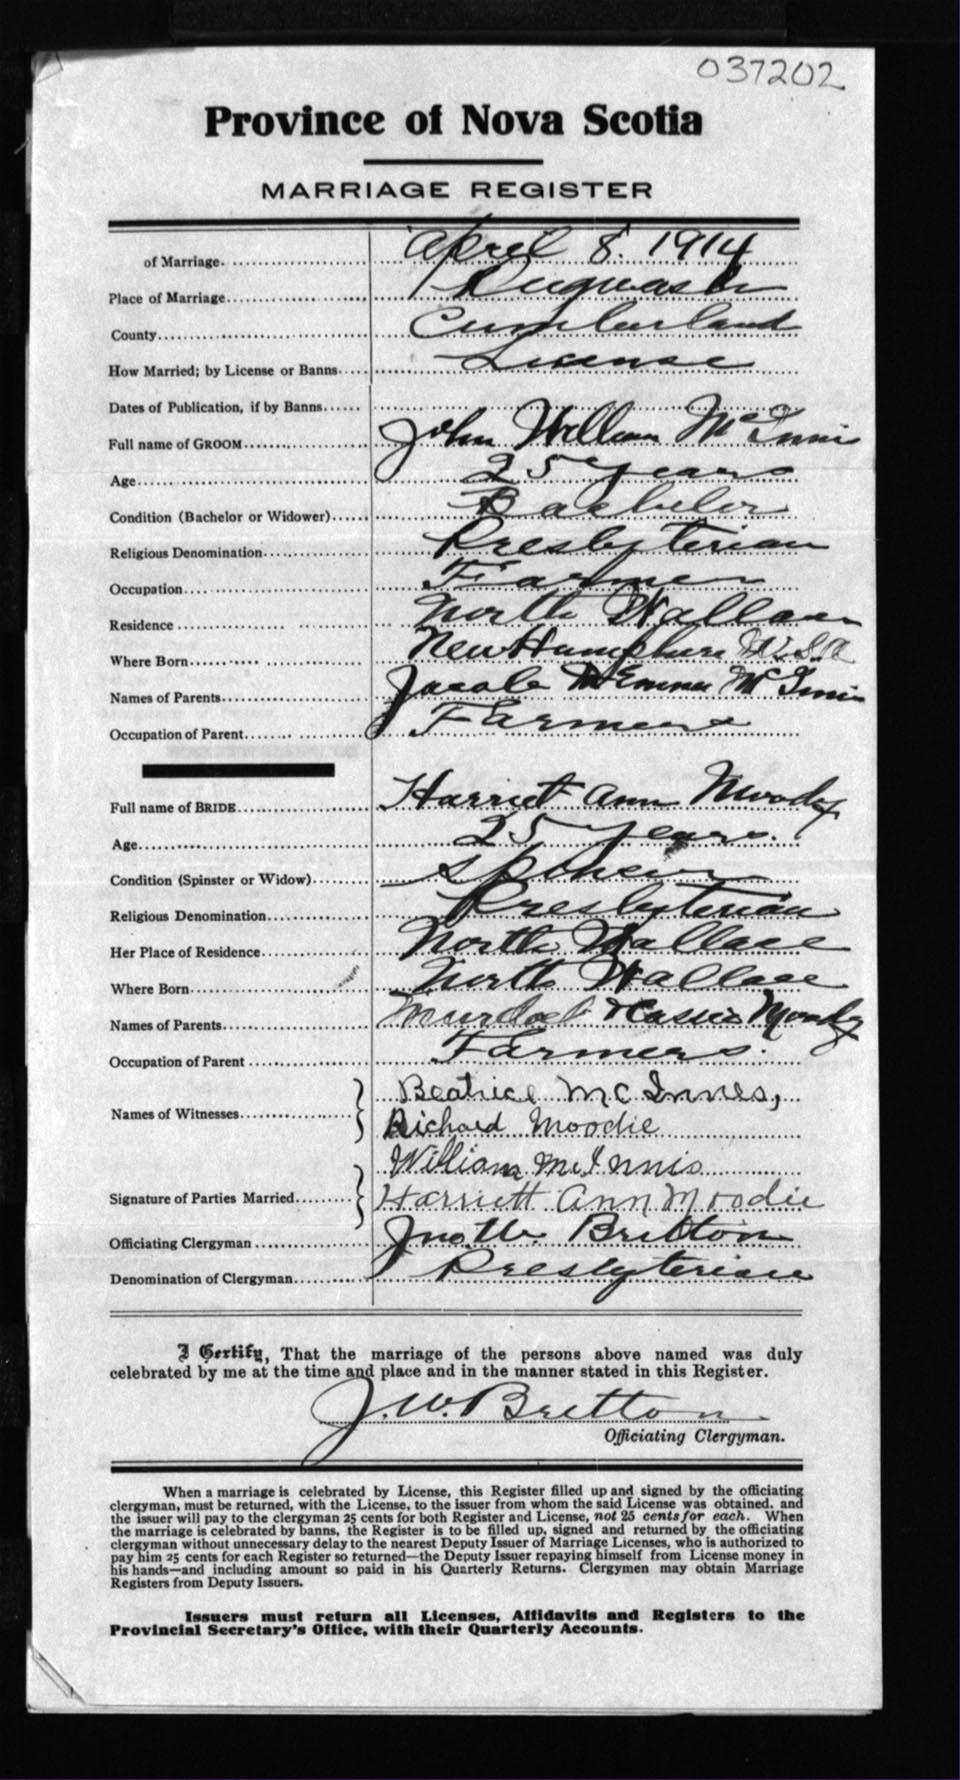 037202
Province of Nova Scotia
MARRIAGE REGISTER
of Marriage. April 8. 1914
Place of Marriage Pugwash
County Cumberland
How Married; by License or Banns License
Dates of Publication, if by Banns
Full name of GROOM John William McInnis
Age 25 years
Condition (Bachelor or Widower) Bachelor
Religious Denomination Presbyterian
Occupation Farmer
Residence North Wallace
Where Born New Humphire U.S.A
Names of Parents Jacob Emma McInnis
Occupation of Parent Farmers
Full name of BRIDE Harriet Ann Moody
Age 25 years.
Condition (Spinster or Widow)
Religious Denomination Presbyterian
Her Place of Residence North Wallace
Where Born North Wallace
Names of Parents Moody
Occupation of Parent Farmers.
Names of Witnesses Beatrice McInnes,
Richard Moodie
William McInnis
Signature of Parties Married Harriett Ann Moodie
Officiating Clergyman Jno. W. Britton
Denomination of Clergyman Presbyterian
I Certify, That the marriage of the persons above named was duly
celebrated by me at the time and place and in the manner stated in this Register.
J. W. Britton
Officiating Clergyman.
When a marriage is celebrated by License, this Register filled up and signed by the officiating
clergyman, must be returned, with the License, to the issuer from whom the said License was obtained, and
the issuer will pay to the clergyman 25 cents for both Register and License, not 25 cents for each. When
the marriage is celebrated by banns, the Register is to be filled up, signed and returned by the officiating
clergyman without unnecessary delay to the nearest Deputy Issuer of Marriage Licenses, who is authorized to
pay him 25 cents for each Register so returned—the Deputy Issuer repaying himself from License money in
his hands—and including amount so paid in his Quarterly Returns. Clergymen may obtain Marriage
Registers from Deputy Issuers.
Issuers must return all Licenses, Affidavits and Registers to the
Provincial Secretary's Office, with their Quarterly Accounts.